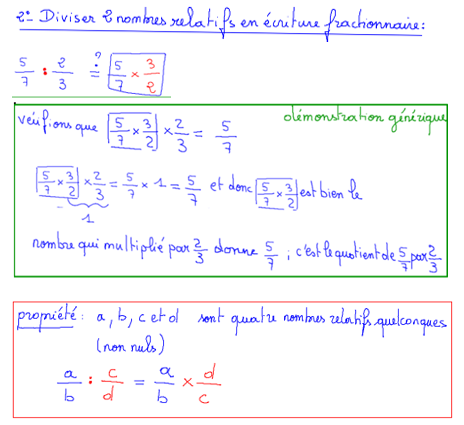 2° Diviser 2 nombres relatifs en écriture fractionnaire :
5/7 : 2/3 =? 5/7 × 3/2
démonstration générique
vérifions que 5/7 × 3/2 × 2/3 = 5/7
5/7 × 3/2 × 2/3 = 5/7 × 1 = 5/7 et donc 5/7 × 3/2 est bien le
1
nombre qui multiplié par 2/3 donne 5/7 ; c'est le quotient de 5/7 par 2/3
propriété : a, b, c et d sont quatre nombres relatifs quelconques
(non nuls)
a/b : c/d = a/b × d/c